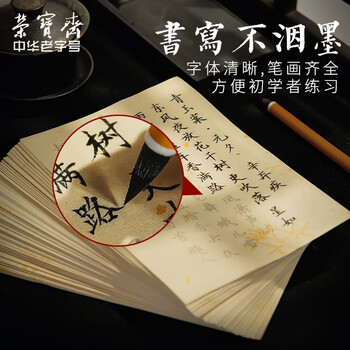 榮寶齋
中华老字号
書寫不洇墨
字体清晰,笔画齐全
方便初学者练习
青玉案 元夕 辛弃疾
东风夜放花千树 更吹落 星如
树
满路